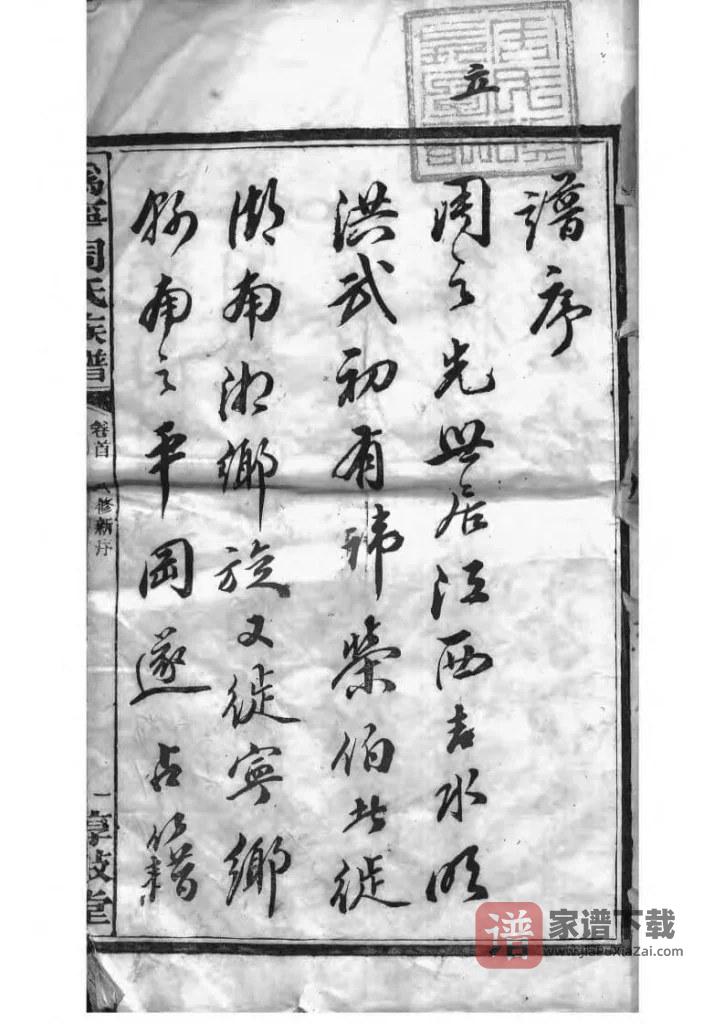 立
譜序
周之先世居江西吉水明
洪武初有諱榮伯者徙
湖南湘鄉旋又徙寧鄉
縣南之平岡遂占籍
溈寧周氏族譜
卷首
八修新序
一
享敘堂
谱
家谱下载
www.jiaPuXiaZai.com